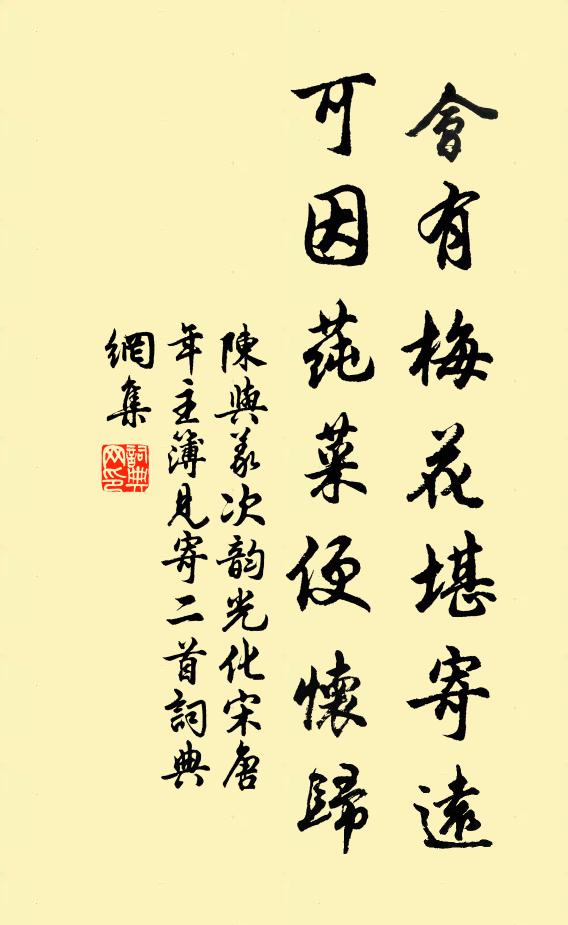 會有梅花堪寄遠
可因蒓菜便懷歸
陳與義次韵光化宋唐
年主簿見寄二首詞典
網集
詞典
网印